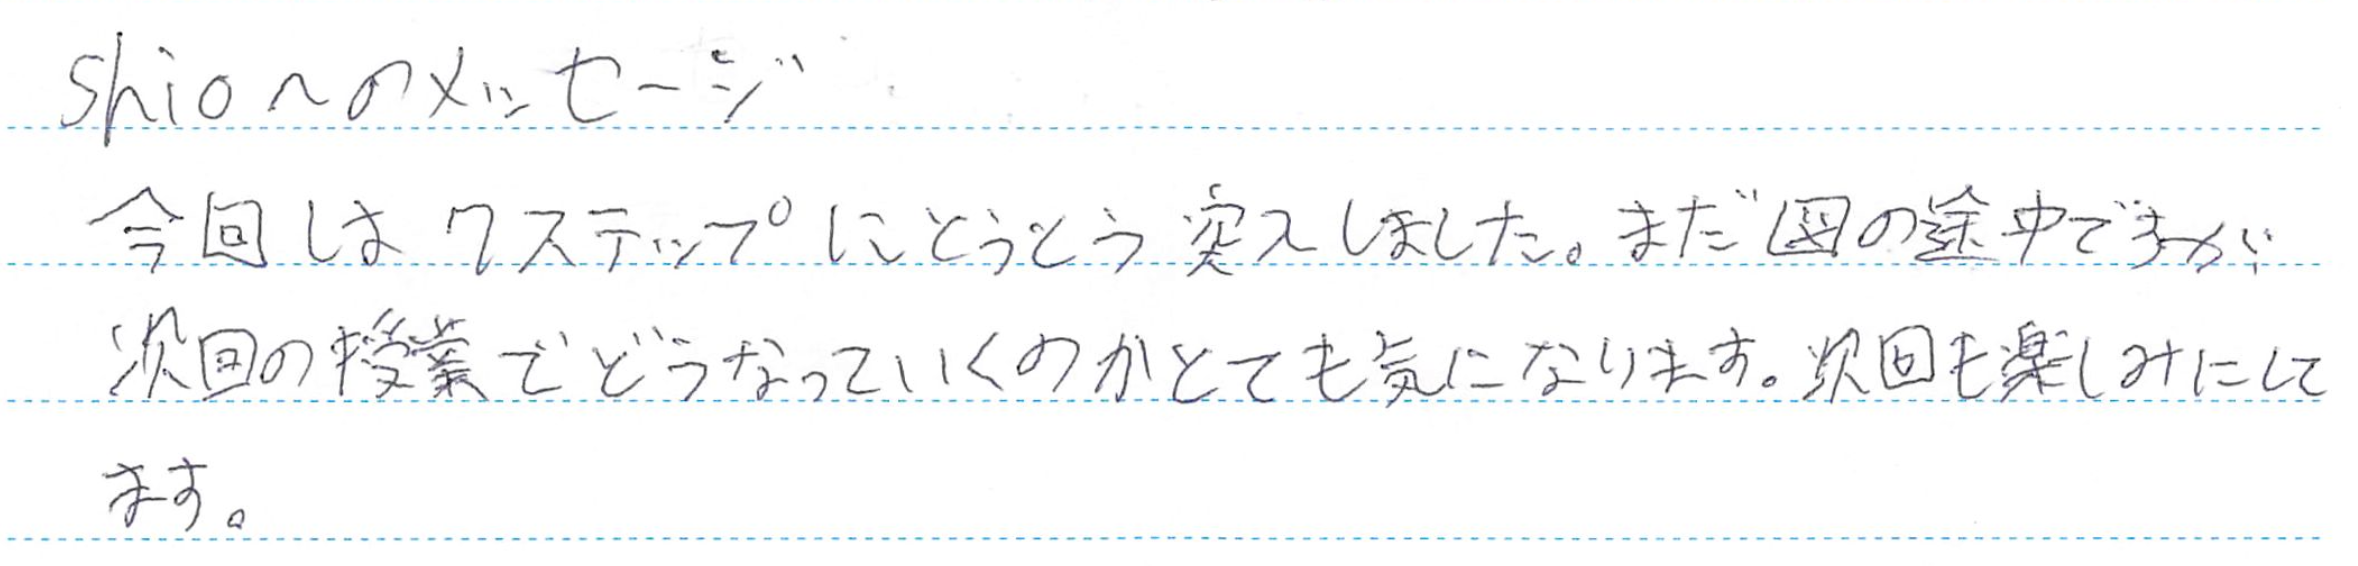 shioへのメッセージ
今回は7ステップにとうとう突入しました。まだ図の途中ですが
次回の授業でどうなっていくのかとても気になります。次回も楽しみにして
ます。